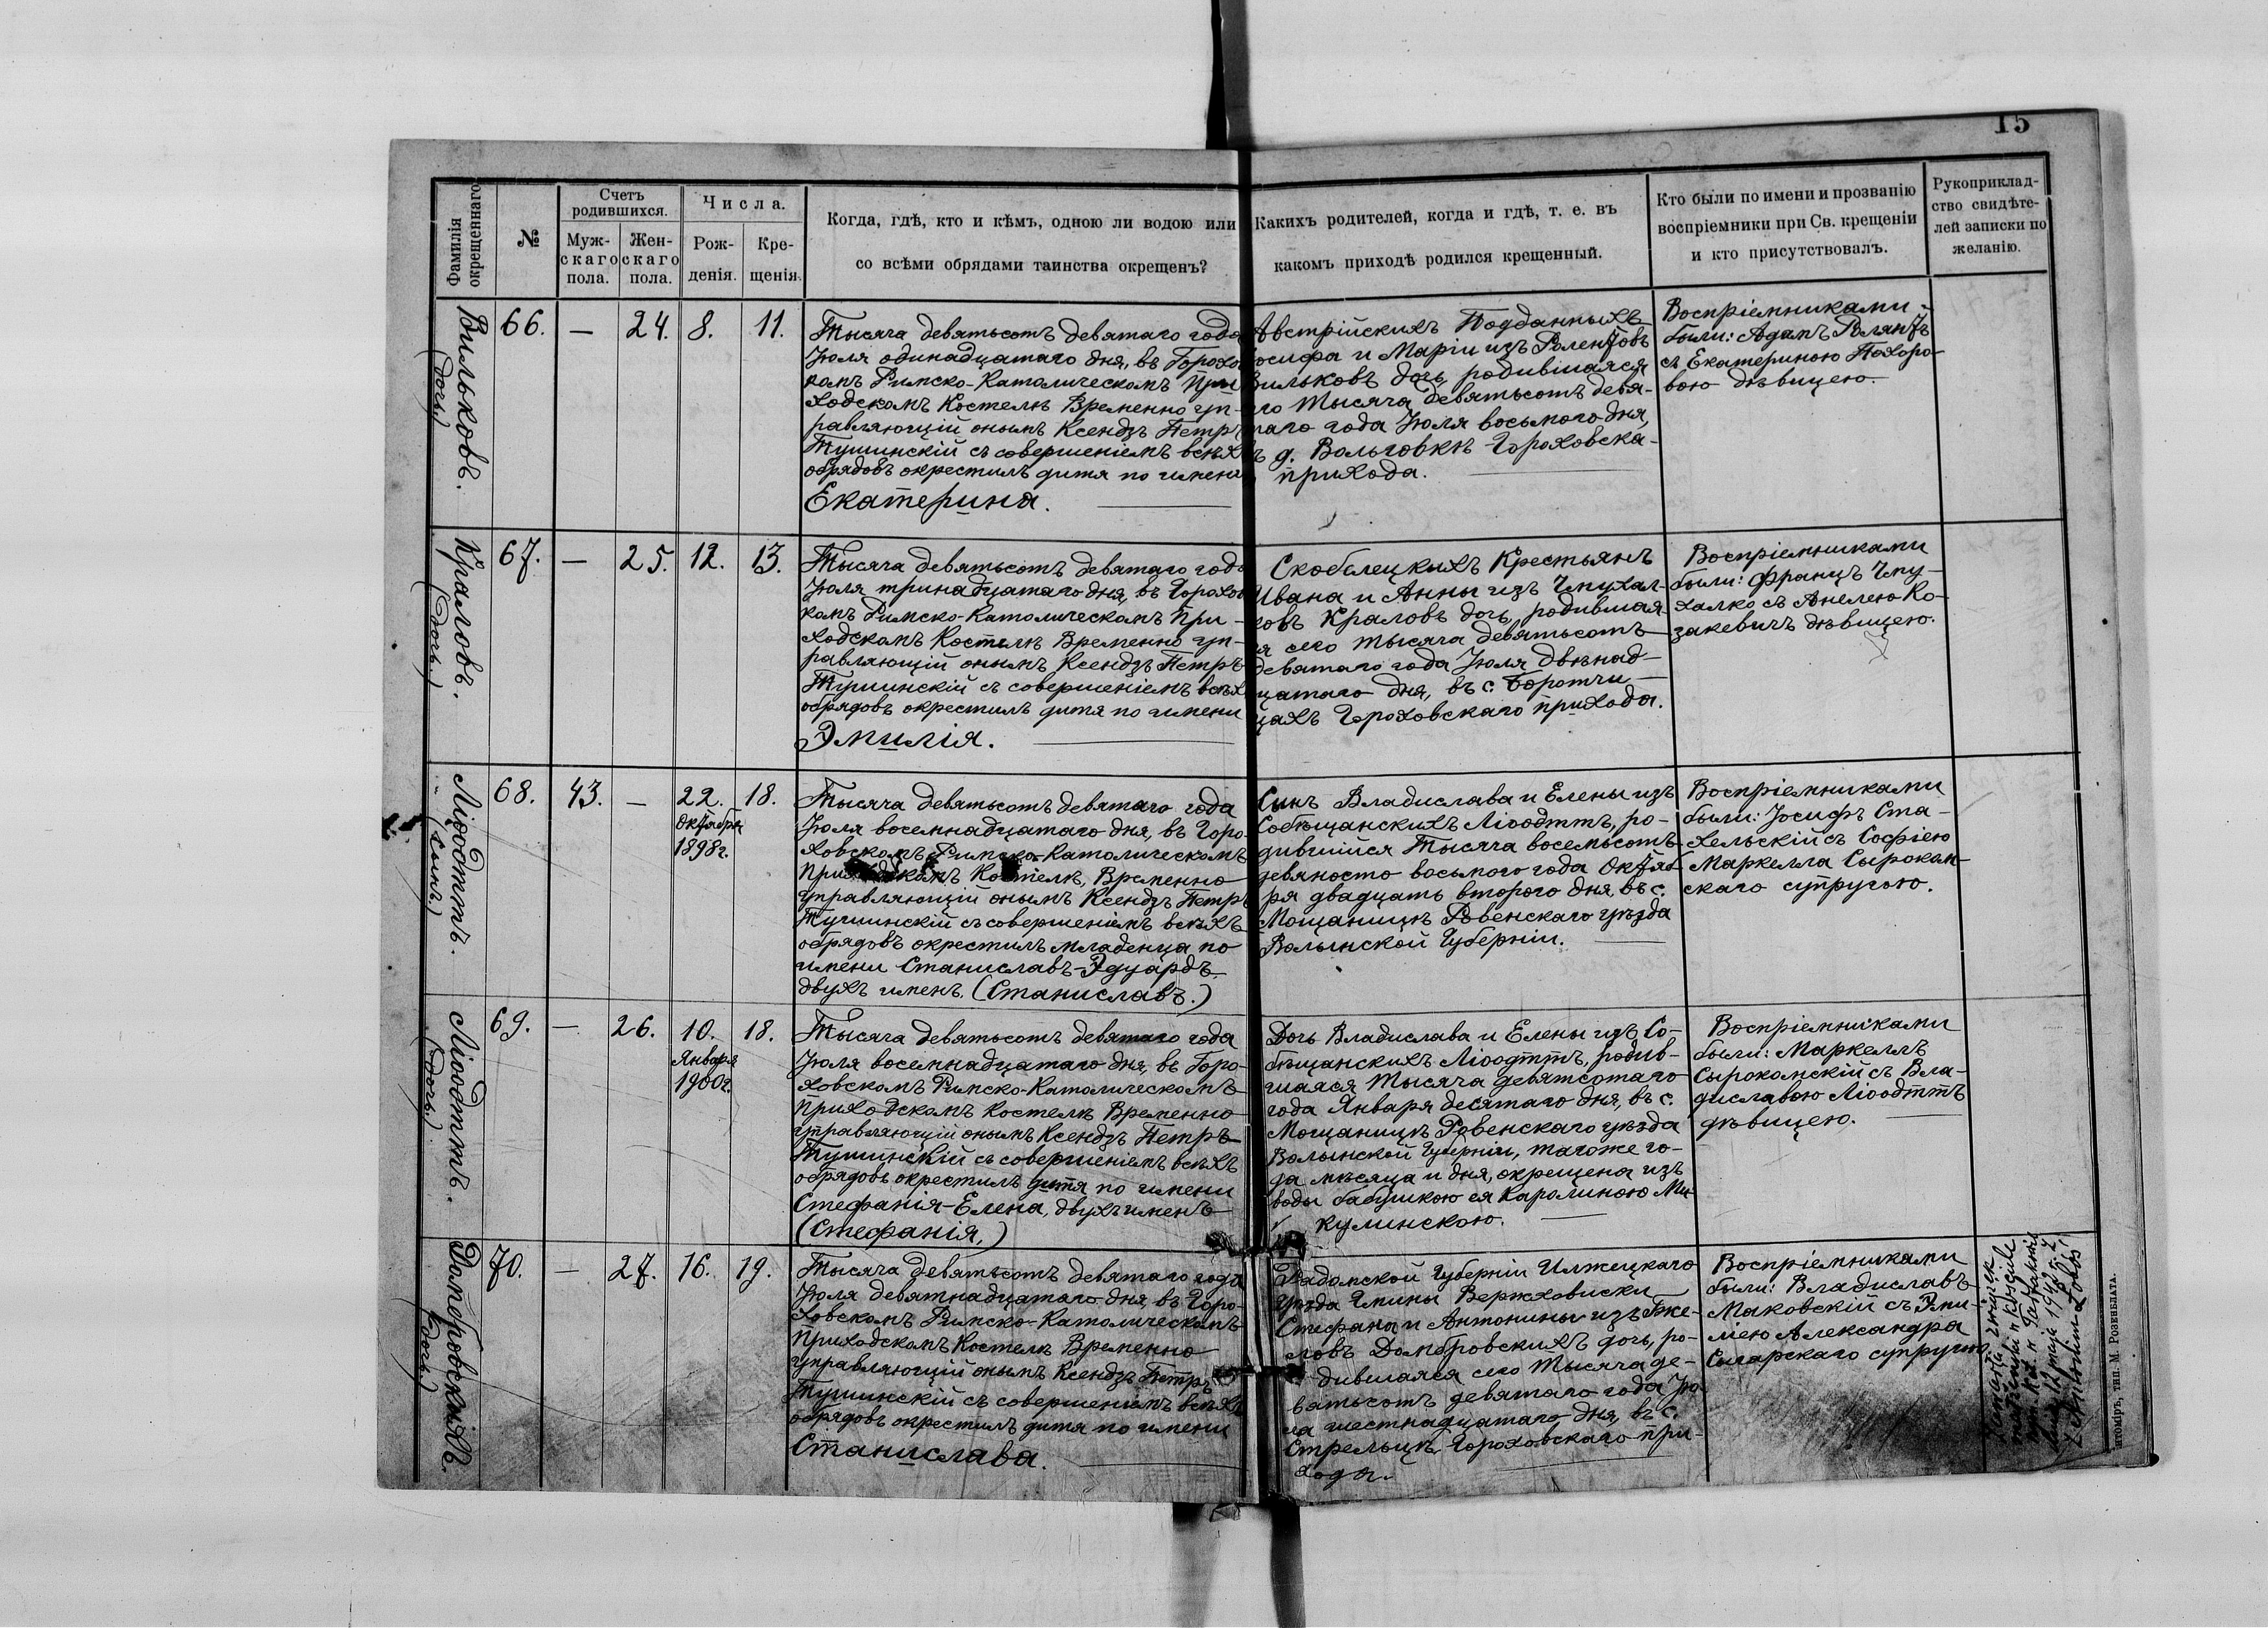 15
Фамилія
окрещеннаго
№
Счетъ
родившихся.
Муж-
скаго
пола.
Жен-
скаго
пола.
Числа.
Рож-
денія.
Кре-
щенія.
Когда, гдѣ, кто и кѣмъ, одною ли водою или
со всѣми обрядами таинства окрещенъ?
Какихъ родителей, когда и гдѣ, т. е. въ
какомъ приходѣ родился крещенный.
Кто были по имени и прозванію
воспріемники при Св. крещеніи
и кто присутствовалъ.
Рукоприклад-
ство свидѣте-
лей записки по
желанію.
Вильковъ.
(дочь)
66.
—
24.
8.
11.
Тысяча девятьсотъ девятаго года
Іюля одинадцатаго дня, въ Горохо
комъ Римско-Католическомъ При
ходскомъ Костелѣ Временно уп-
равляющій онымъ Ксендзъ Петръ
Тушинскій съ совершеніемъ всѣхъ
обрядовъ окрестилъ дитя по имени
Екатерина.
Австрійскихъ Подданныхъ
осифа и Маріи изъ
Вильковъ дочь, родившаяся
го Тысяча девятьсотъ девя-
таго года Іюля восьмого дня,
въ д. Вольговкѣ Гороховска-
прихода.
Воспріемниками
были: Адамъ
съ Екатериною Похоро-
вою дѣвицею.
Краловъ.
(дочь.)
67.
—
25.
12.
13.
Тысяча девятьсотъ девятаго года
Іюля тринадцатаго дня, въ Горохов
комъ Римско-Католическомъ При-
ходскомъ Костелѣ Временно уп-
равляющій онымъ Ксендзъ Петръ
Тушинскій съ совершеніемъ всѣхъ
обрядовъ окрестилъ дитя по имени
Эмилія.
Скобелецкихъ Крестьянъ
Ивана и Анны изъ Чпухал-
ковъ Краловъ дочь, родившая
я сего Тысяча девятьсотъ
девятаго года Іюля двѣнад-
цатаго дня, въ с. Боротчи-
цахъ Гороховскаго прихода.
Воспріемниками
были: Францъ Чпу-
халко съ Анелею Ко-
закевичъ дѣвицею.
Ліоодттъ.
(сынъ)
68.
43.
—
22.
Октября
1898г.
18.
Тысяча девятьсотъ девятаго года
Іюля восемнадцатаго дня, въ Горо-
ховскомъ Римско-Католическомъ
Приходскомъ Костелѣ, Временно
управляющій онымъ Ксендзъ Петръ
Тушинскій съ совершеніемъ всѣхъ
обрядовъ окрестилъ младенца по
имени Станиславъ-Эдуардъ
двухъ именъ. (Станиславъ.)
Сынъ Владислава и Елены изъ
Собѣщанскихъ Ліоодттъ, ро-
дившійся Тысяча восемьсотъ
девяносто восьмого года Октяб
ря двадцать второго дня, въ с.
Мощаницѣ Ровенскаго уѣзда
Волынской Губерніи.
Воспріемниками
были: Іосифъ Ста-
хельскій съ Софіею
Маркелла Сыроком-
скаго супругою.
Ліоодттъ.
(дочь)
69.
—
26.
10.
Января
1900г.
18.
Тысяча девятьсотъ девятаго года
Іюля восемнадцатаго дня, въ Горо-
ховскомъ Римско-Католическомъ
Приходскомъ Костелѣ Временно
управляющій онымъ Ксендзъ Петръ
Тушинскій съ совершеніемъ всѣхъ
обрядовъ окрестилъ дитя по имени
Стефанія-Елена, двухъ именъ
(Стефанія,)
Дочь Владислава и Елены изъ Со-
бѣщанскихъ Ліоодттъ, родив-
шаяся Тысяча девятсотаго
года Января десятаго дня, въ с.
Мощаницѣ Ровенскаго уѣзда
Волынской Губерніи, тогоже го-
да мѣсяца и дня, окрещена изъ
воды бабушкою ея Каролиною Ми-
кулинскою.
Воспріемниками
были: Маркеллъ
Сырокомскій съ Вла-
диславою Ліоодттъ
дѣвицею.
Домбровскихъ.
(дочь)
70.
—
27.
16.
19.
Тысяча девятьсотъ девятаго года
Іюля девятнадцатаго дня, въ Горо-
ховскомъ Римско-Католическомъ
Приходскомъ Костелѣ Временно
управляющій онымъ Ксендзъ Петръ
Тушинскій съ совершеніемъ всѣхъ
обрядовъ окрестилъ дитя по имени
Станислава.
Радомской Губерніи Илжецкаго
Уѣзда Гмины Вержховиски
Стефана и Антонины изъ Гже-
ловъ Домбровскихъ дочь, ро-
дившаяся сего Тысяча де-
вятьсотъ девятаго года Ію-
ля шестнадцатаго дня, въ с.
Стрельцѣ Гороховскаго при-
хода.
Воспріемниками
были: Владиславъ
Маковскій съ Эми-
ліею Александра
Сигарскаго супругою.
Zawarła związek
małżeński w kościele
12 maja 1942 r. z
итоміръ, тип. М. Розенблата.